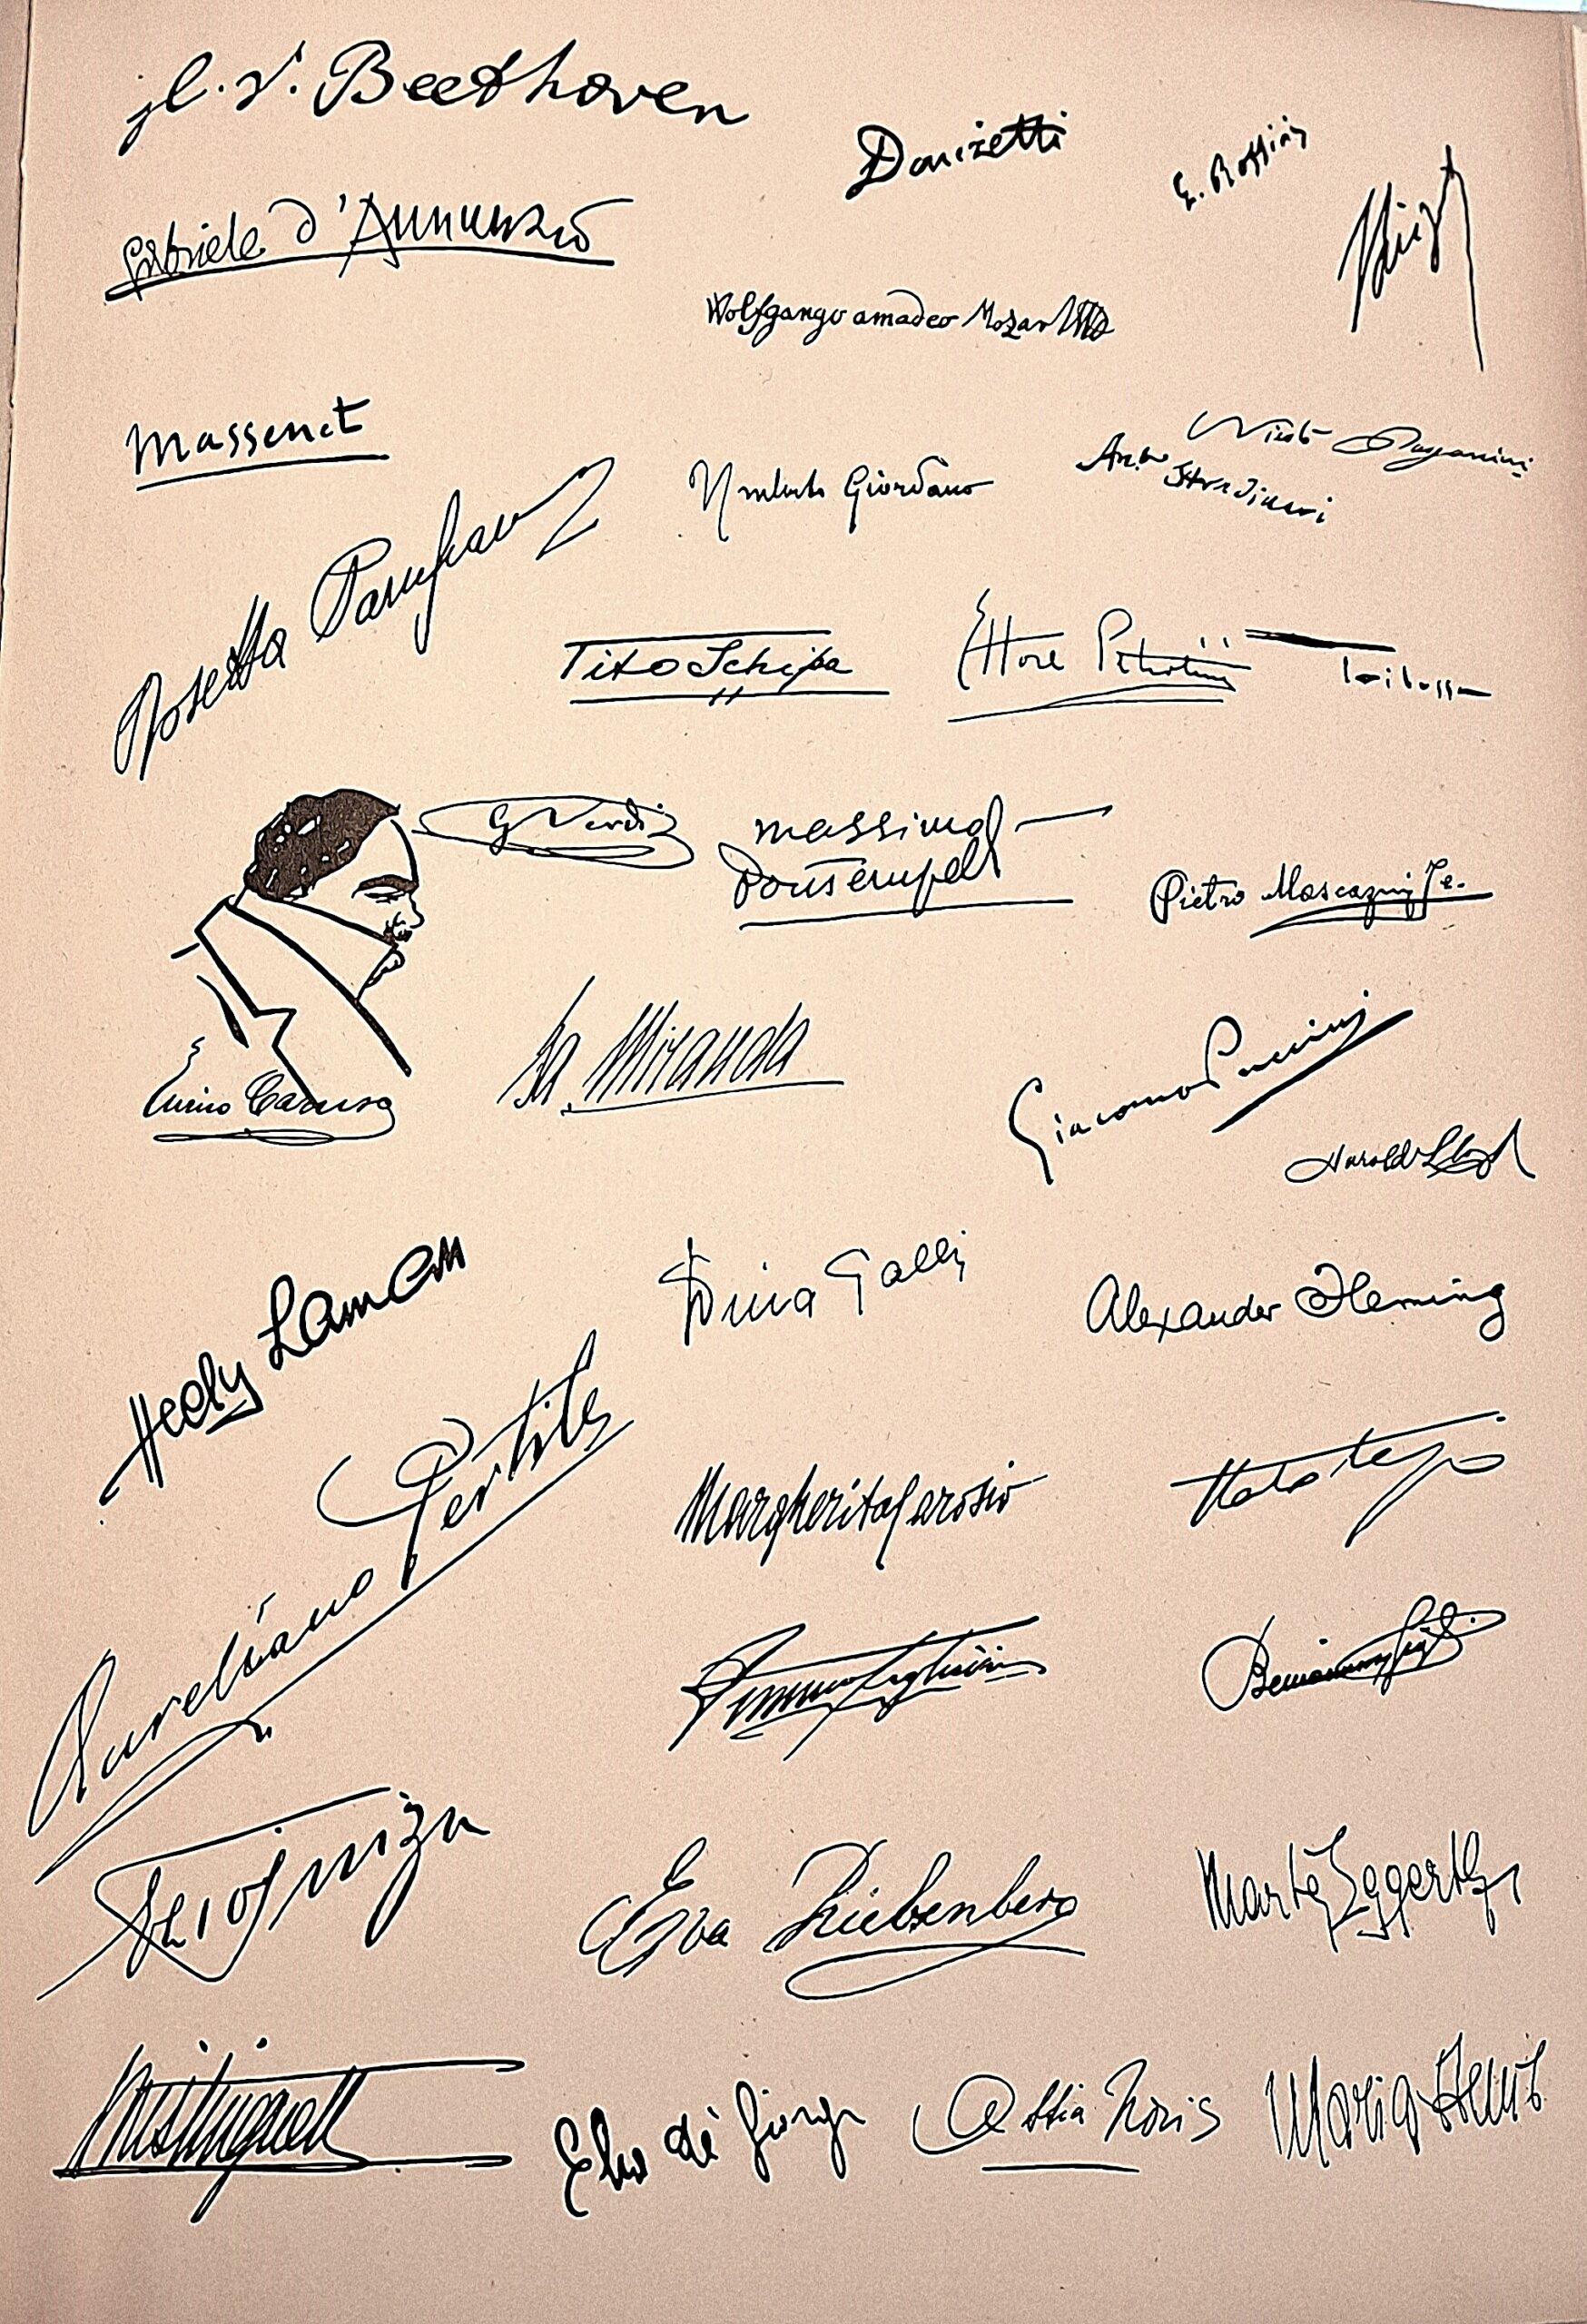 L. v. Beethoven
Donizetti
G. Rossini
Gabriele d'Annunzio
Wolfgango amadeo Mozart
Massenet
Umberto Giordano
Nicolò Paganini
Anto Stradivari
Rosetta Pampanini
Tito Schipa
Ettore Petrolini
G Verdi
massimo
Bontempelli
Pietro Mascagni
Enrico Caruso
Isa Miranda
Giacomo Puccini
Harold Lloyd
Hedy Lamarr
Dina Galli
Alexander Fleming
Aureliano Pertile
Margherita Carosio
Beniamino Gigli
Eva
Martha Eggerth
Mistinguett
Elsa de' Giorgi
Assia Noris
Maria Denis